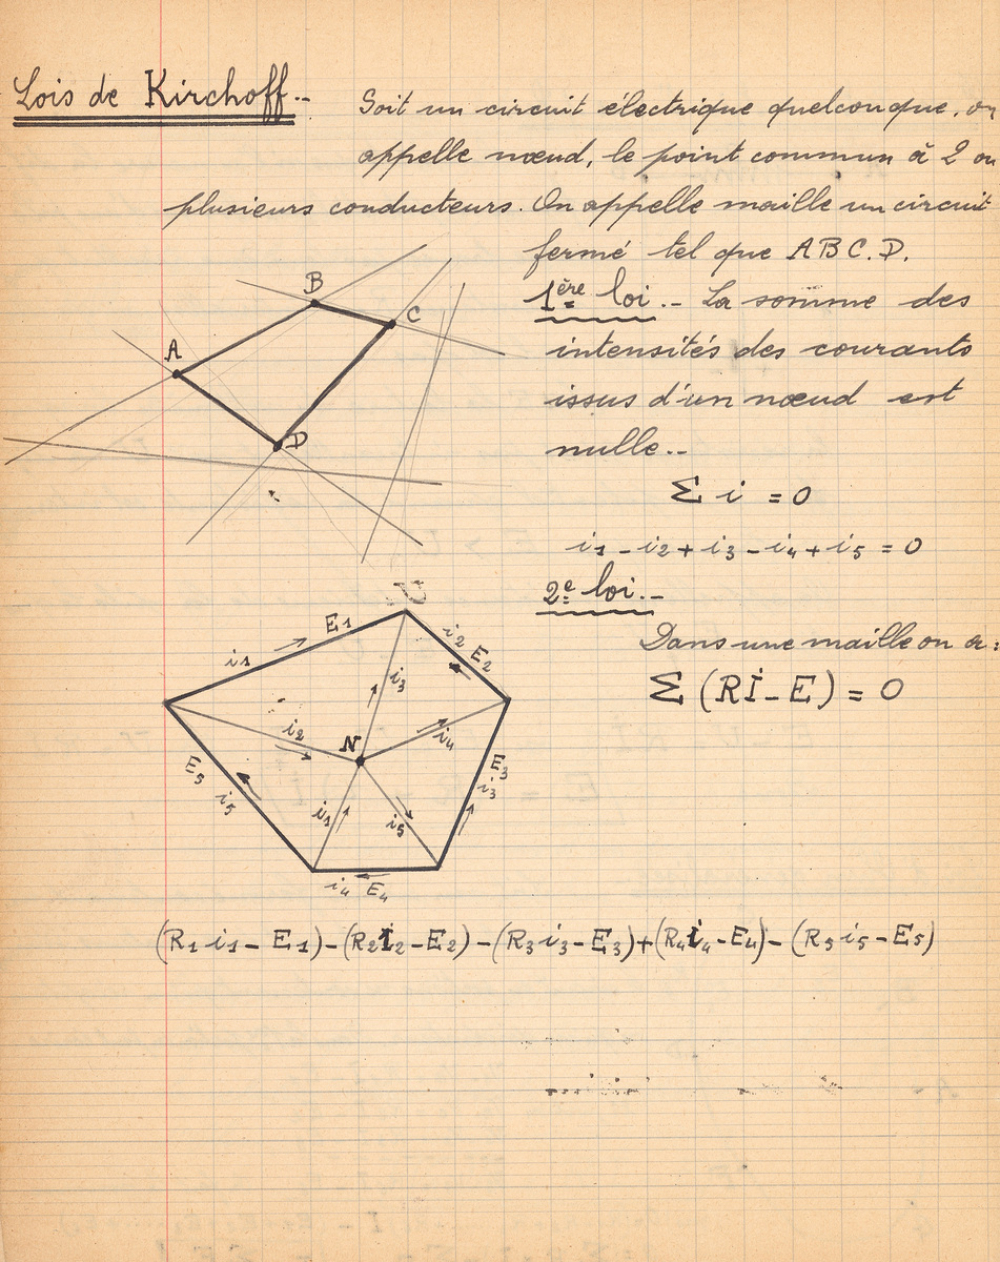 Lois de Kirchoff..
Soit un circuit électrique quelconque, on
appelle nœud, le point commun à 2 ou
plusieurs conducteurs. On appelle maille un circuit
fermé tel que ABC.D.
1ère loi.- La somme des
intensités des courants
issus d'un nœud est
nulle..
Σ i = 0
i1 - i2 + i3 - i4 + i5 = 0
2e loi.-
Dans une maille on a:
Σ (Ri - E) = 0
A
B
C
D
E1
i1
i2 E2
i3
i2
N
i4
E3
i3
E5
i5
i1
i5
i4 E4
(R1 i1 - E1) - (R2 i2 - E2) - (R3 i3 - E3) + (R4 i4 - E4) - (R5 i5 - E5)